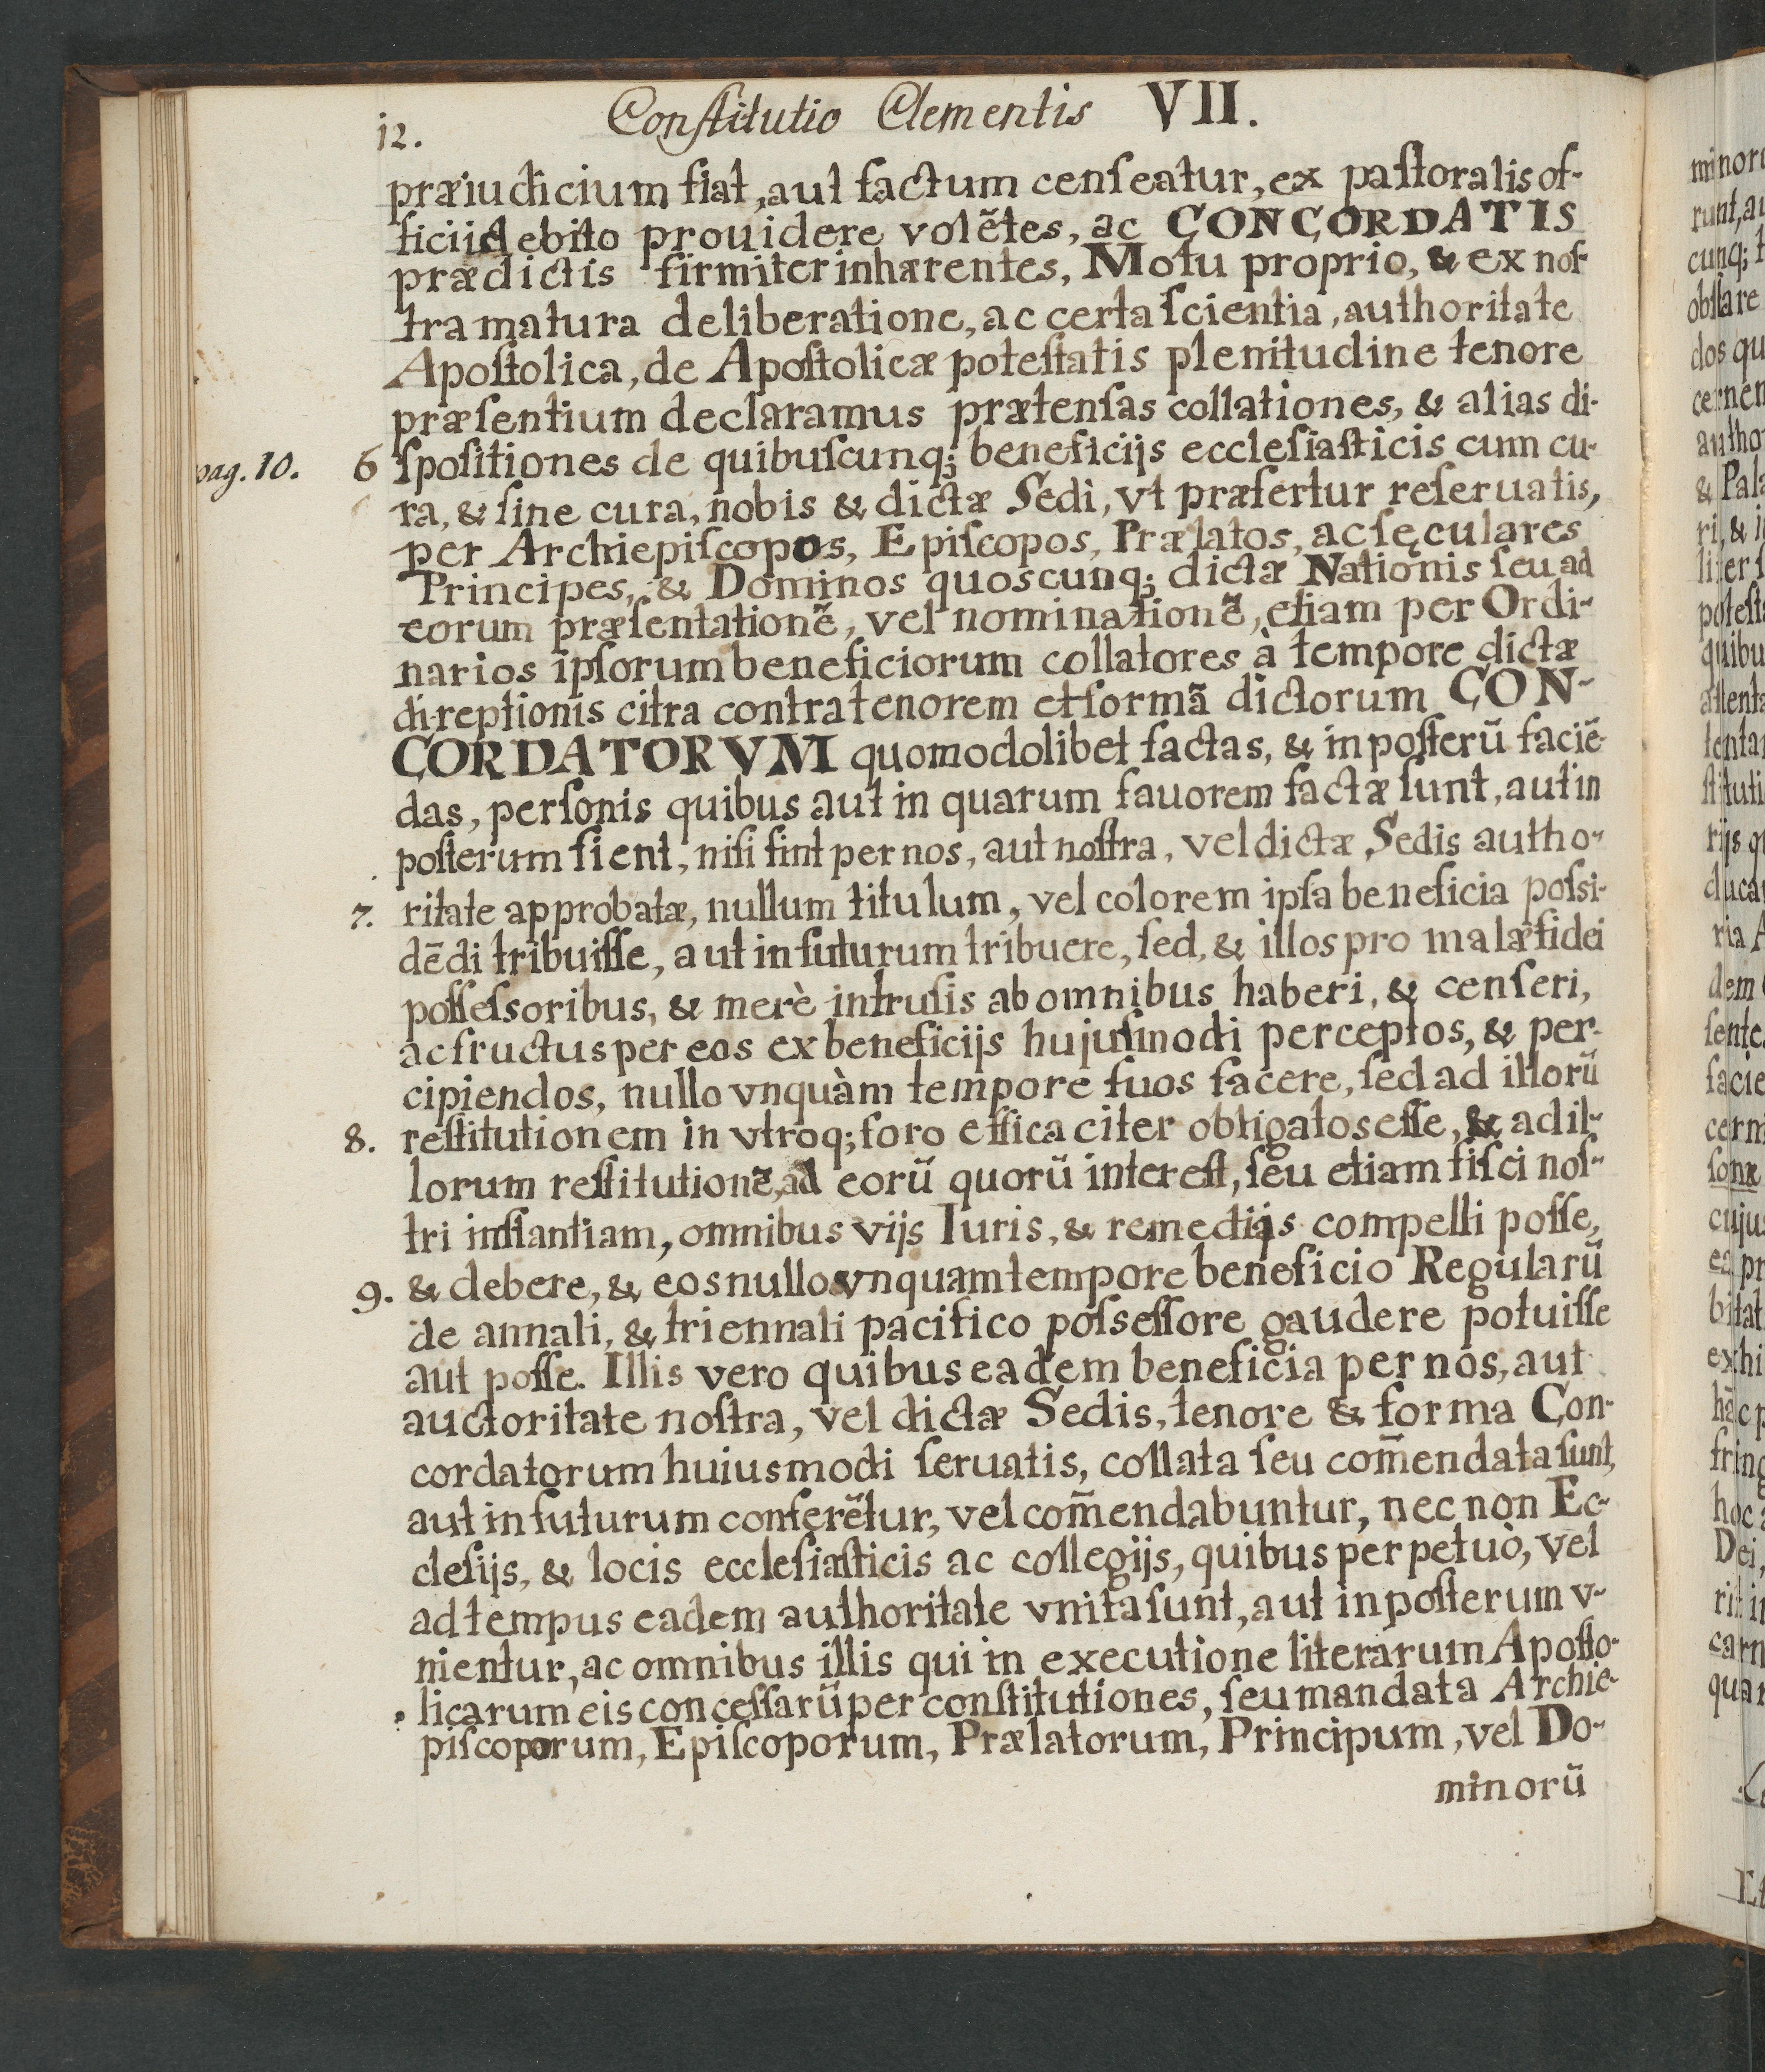 12.
Conſtitutio Clementis VII.
præiudicium fiat, aut factum cenſeatur, ex paſtoralis of-
ficii debito prouidere volẽtes, ac CONCORDATIS
prædictis firmiter inhærentes, Motu proprio, & ex noſ-
tra matura deliberatione, ac certa ſcientia, authoritate
Apoſtolica, de Apoſtolicæ poteſtatis plenitudine tenore
præſentium declaramus prætenſas collationes, & alias di-
pag. 10. 6 ſpoſitiones de quibuſcunq; beneficijs eccleſiaſticis cum cu-
ra, & ſine cura, nobis & dictæ Sedi, vt præfertur reſeruatis,
per Archiepiſcopos, Epiſcopos, Prælatos, ac ſęculares
Principes, & Dominos quoscunq; dictæ Nationis ſeu ad
eorum præſentationẽ, vel nominationẽ, etiam per Ordi-
narios ipſorum beneficiorum collatores à tempore dictæ
direptionis citra contra tenorem et formã dictorum CON-
CORDATORVM quomodolibet factas, & in poſterũ faciẽ-
das, perſonis quibus aut in quarum fauorem factæ ſunt, aut in
poſterum fient, niſi ſint per nos, aut noſtra, vel dictæ Sedis autho-
7. ritate approbatæ, nullum titulum, vel colorem ipſa beneficia poſsi-
dẽdi tribuiſſe, aut in futurum tribuere, ſed, & illos pro malæ fidei
poſſeſsoribus, & merè intruſis ab omnibus haberi, & cenſeri,
ac fructus per eos ex beneficijs hujuſmodi perceptos, & per-
cipiendos, nullo vnquàm tempore ſuos facere, ſed ad illorũ
8. reſtitutionem in vtroq; foro efficaciter obligatos eſſe, & ad il-
lorum reſtitutionẽ, ad eorũ quorũ intereſt, ſeu etiam fiſci noſ-
tri inſtantiam, omnibus vijs Iuris, & remedijs compelli poſſe,
9. & debere, & eos nullo vnquam tempore beneficio Regularũ
de annali, & triennali pacifico poſseſſore gaudere potuiſſe
aut poſſe. Illis vero quibus eadem beneficia per nos, aut
auctoritate noſtra, vel dictæ Sedis, tenore & forma Con-
cordatorum huiusmodi ſeruatis, collata ſeu com̃endata ſunt,
aut in futurum conferẽtur, vel com̃endabuntur, nec non Ec-
cleſijs, & locis eccleſiaſticis ac collegijs, quibus perpetuò, vel
ad tempus eadem authoritate vnita ſunt, aut in poſterum v-
nientur, ac omnibus illis qui in executione literarum Apoſto-
licarum eis conceſſarũ per conſtitutiones, ſeu mandata Archie-
piſcoporum, Epiſcoporum, Prælatorum, Principum, vel Do-
minorũ